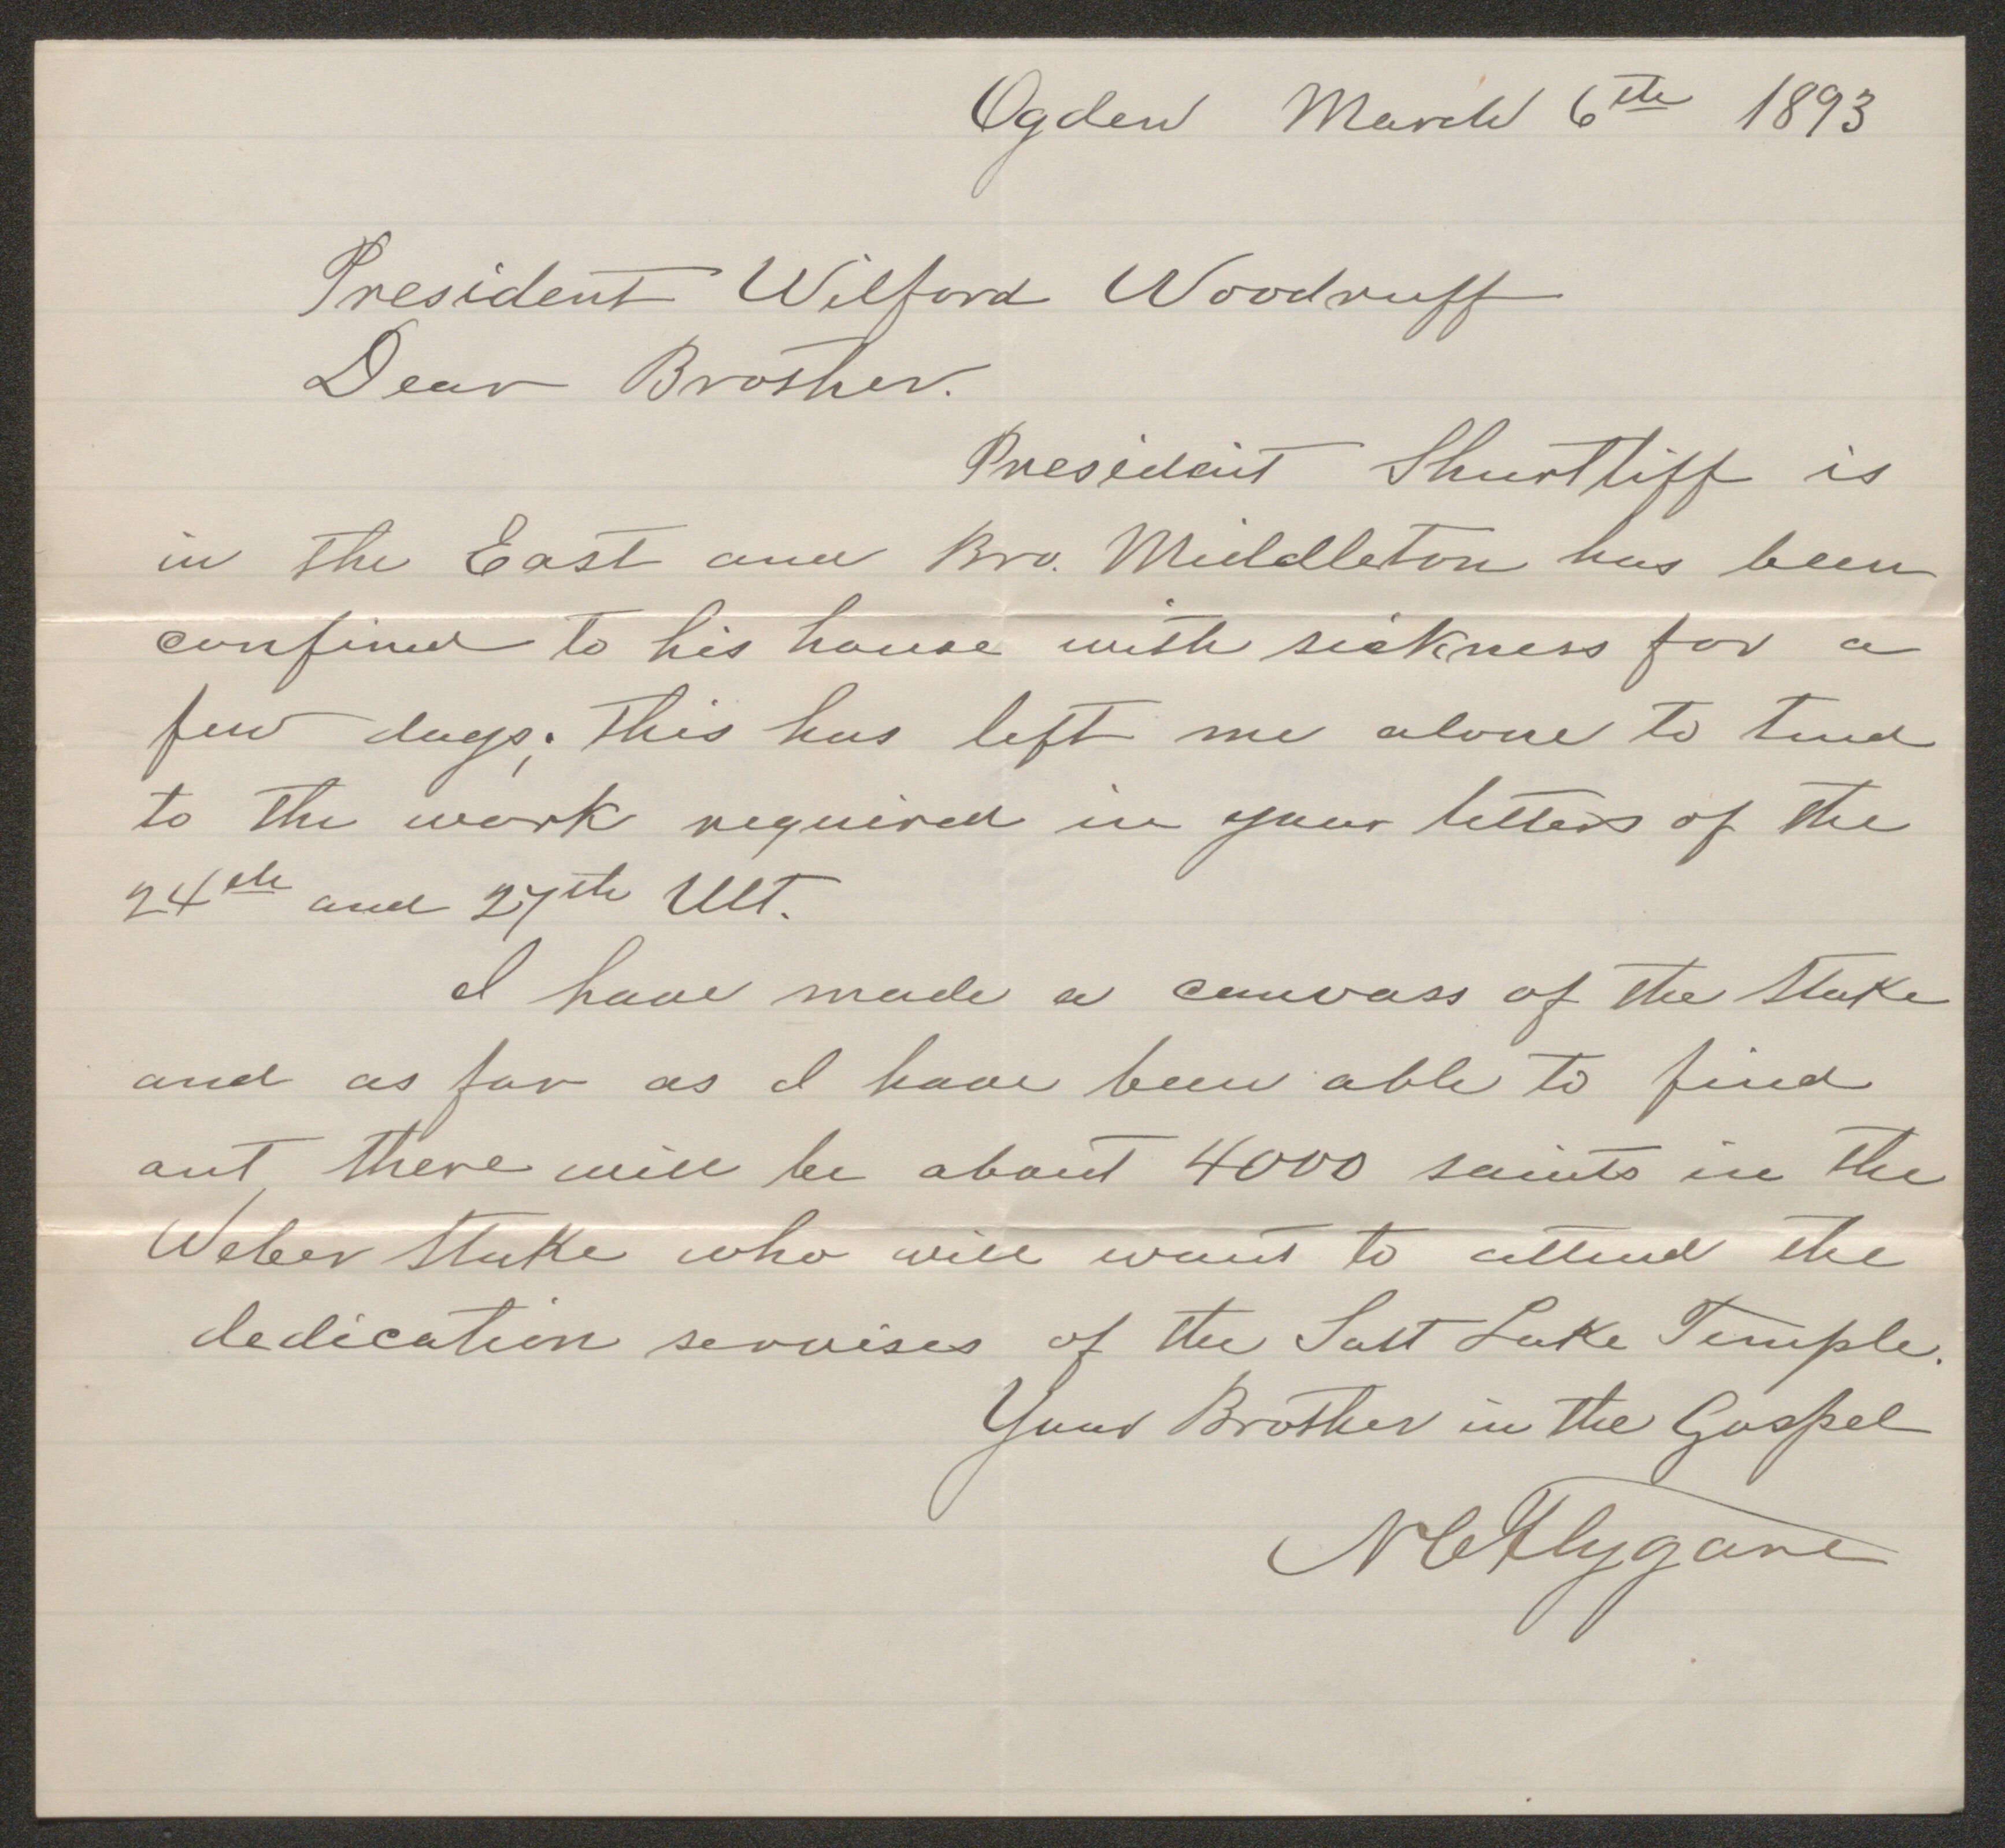 Ogden March 6th 1893
President Wilford Woodruff
Dear Brother.
President Shurtliff is
in the East and Bro. Middleton has been
confined to his house with sickness for a
few days; this has left me alone to tend
to the work required in your letters of the
24th and 27th Ult.
I have made a canvass of the Stake
and as far as I have been able to find
out, there will be about 4000 saints in the
Weber Stake who will want to attend the
dedication servises of the Salt Lake Temple.
Your Brother in the Gospel
N C Flygare